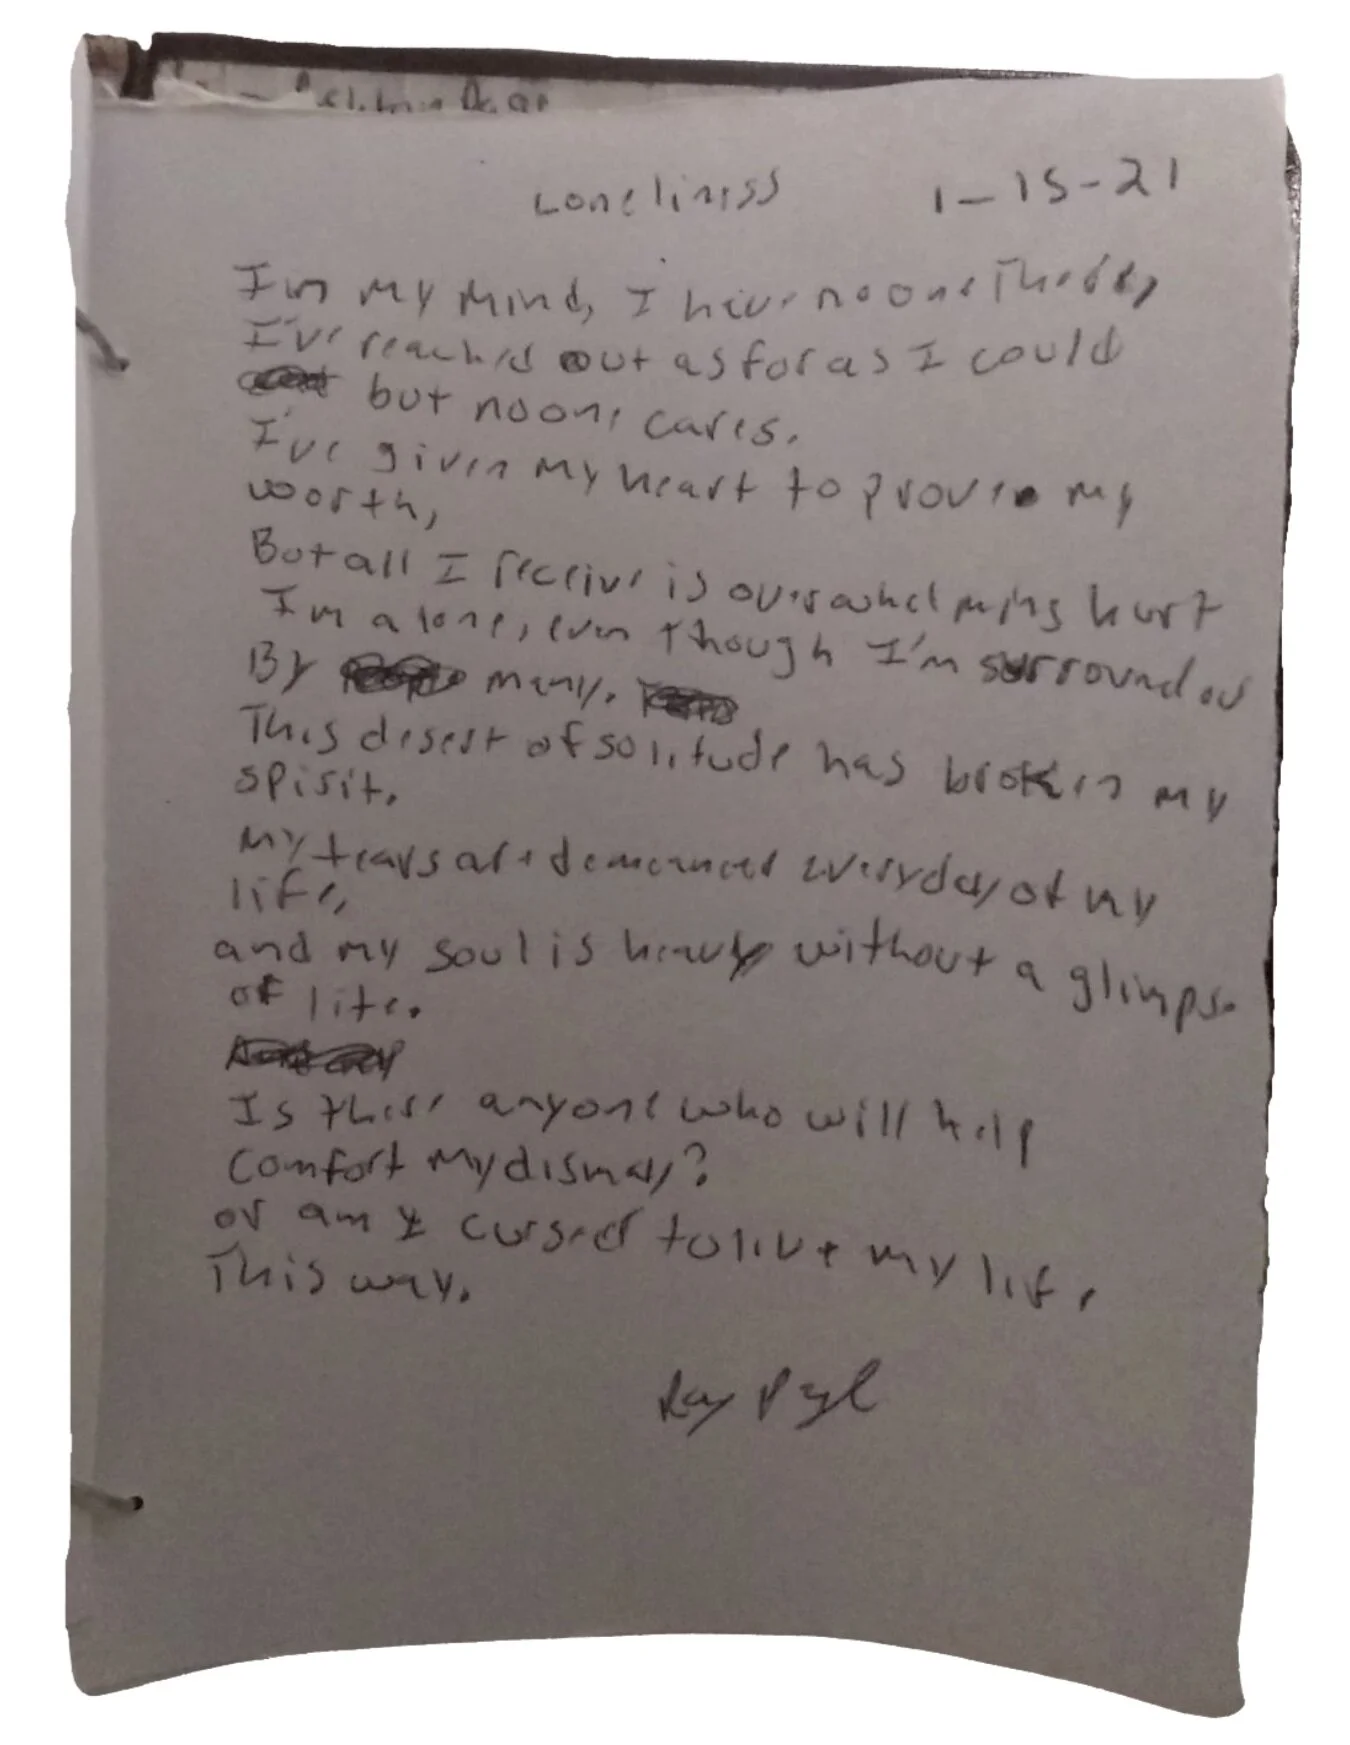 Loneliness 1-15-21
I'm my mind, I have no one there,
I've reached out as for as I could
but no one cares.
I've given my heart to prove my
worth,
But all I receive is overwhelming hurt
I'm alone, even though I'm surrounded
By many.
This desert of solitude has broken my
spirit.
My tears are demanded everyday of my
life,
and my soul is heavy without a glimpse
of life.
Is there anyone who will help
comfort my dismay?
or am I cursed to live my life
This way.
Ray